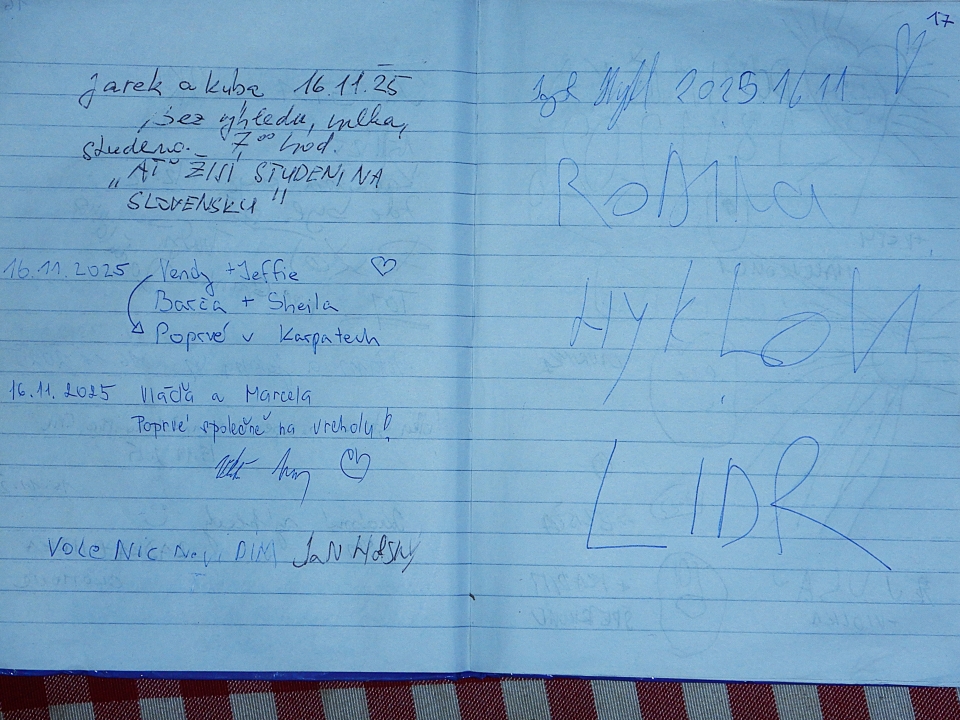 Jarek a Kuba 16.11.25
„Bez výhledu, mlha,
studeno. 7⁰⁰ hod.
„AŤ ŽIJÍ STUDENI NA
SLOVENSKU"
16.11.2025 Vendy + Jeffie ♡
Barča + Sheila
Poprvé v Karpatech
16.11.2025 Vláďa a Marcela
Poprvé společně na vrcholu!
♡
VOLE NIC NeviDIM JaN
17
2025 16 11
RODINA
HYKLOVI
LIDR